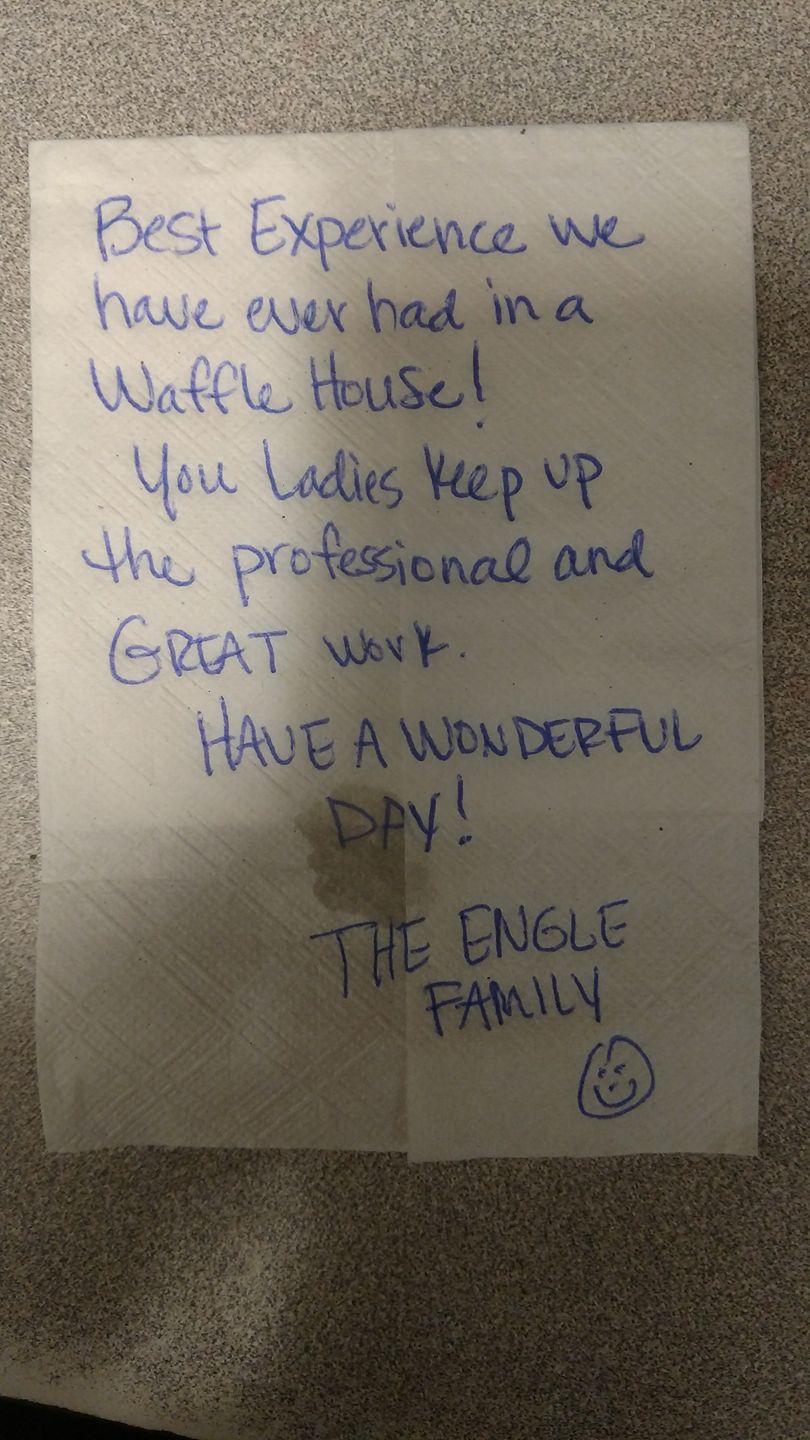 Best Experience we
have ever had in a
Waffle House!
You Ladies keep up
the professional and
GREAT work.
HAVE A WONDERFUL
DAY!
THE ENGLE
FAMILY